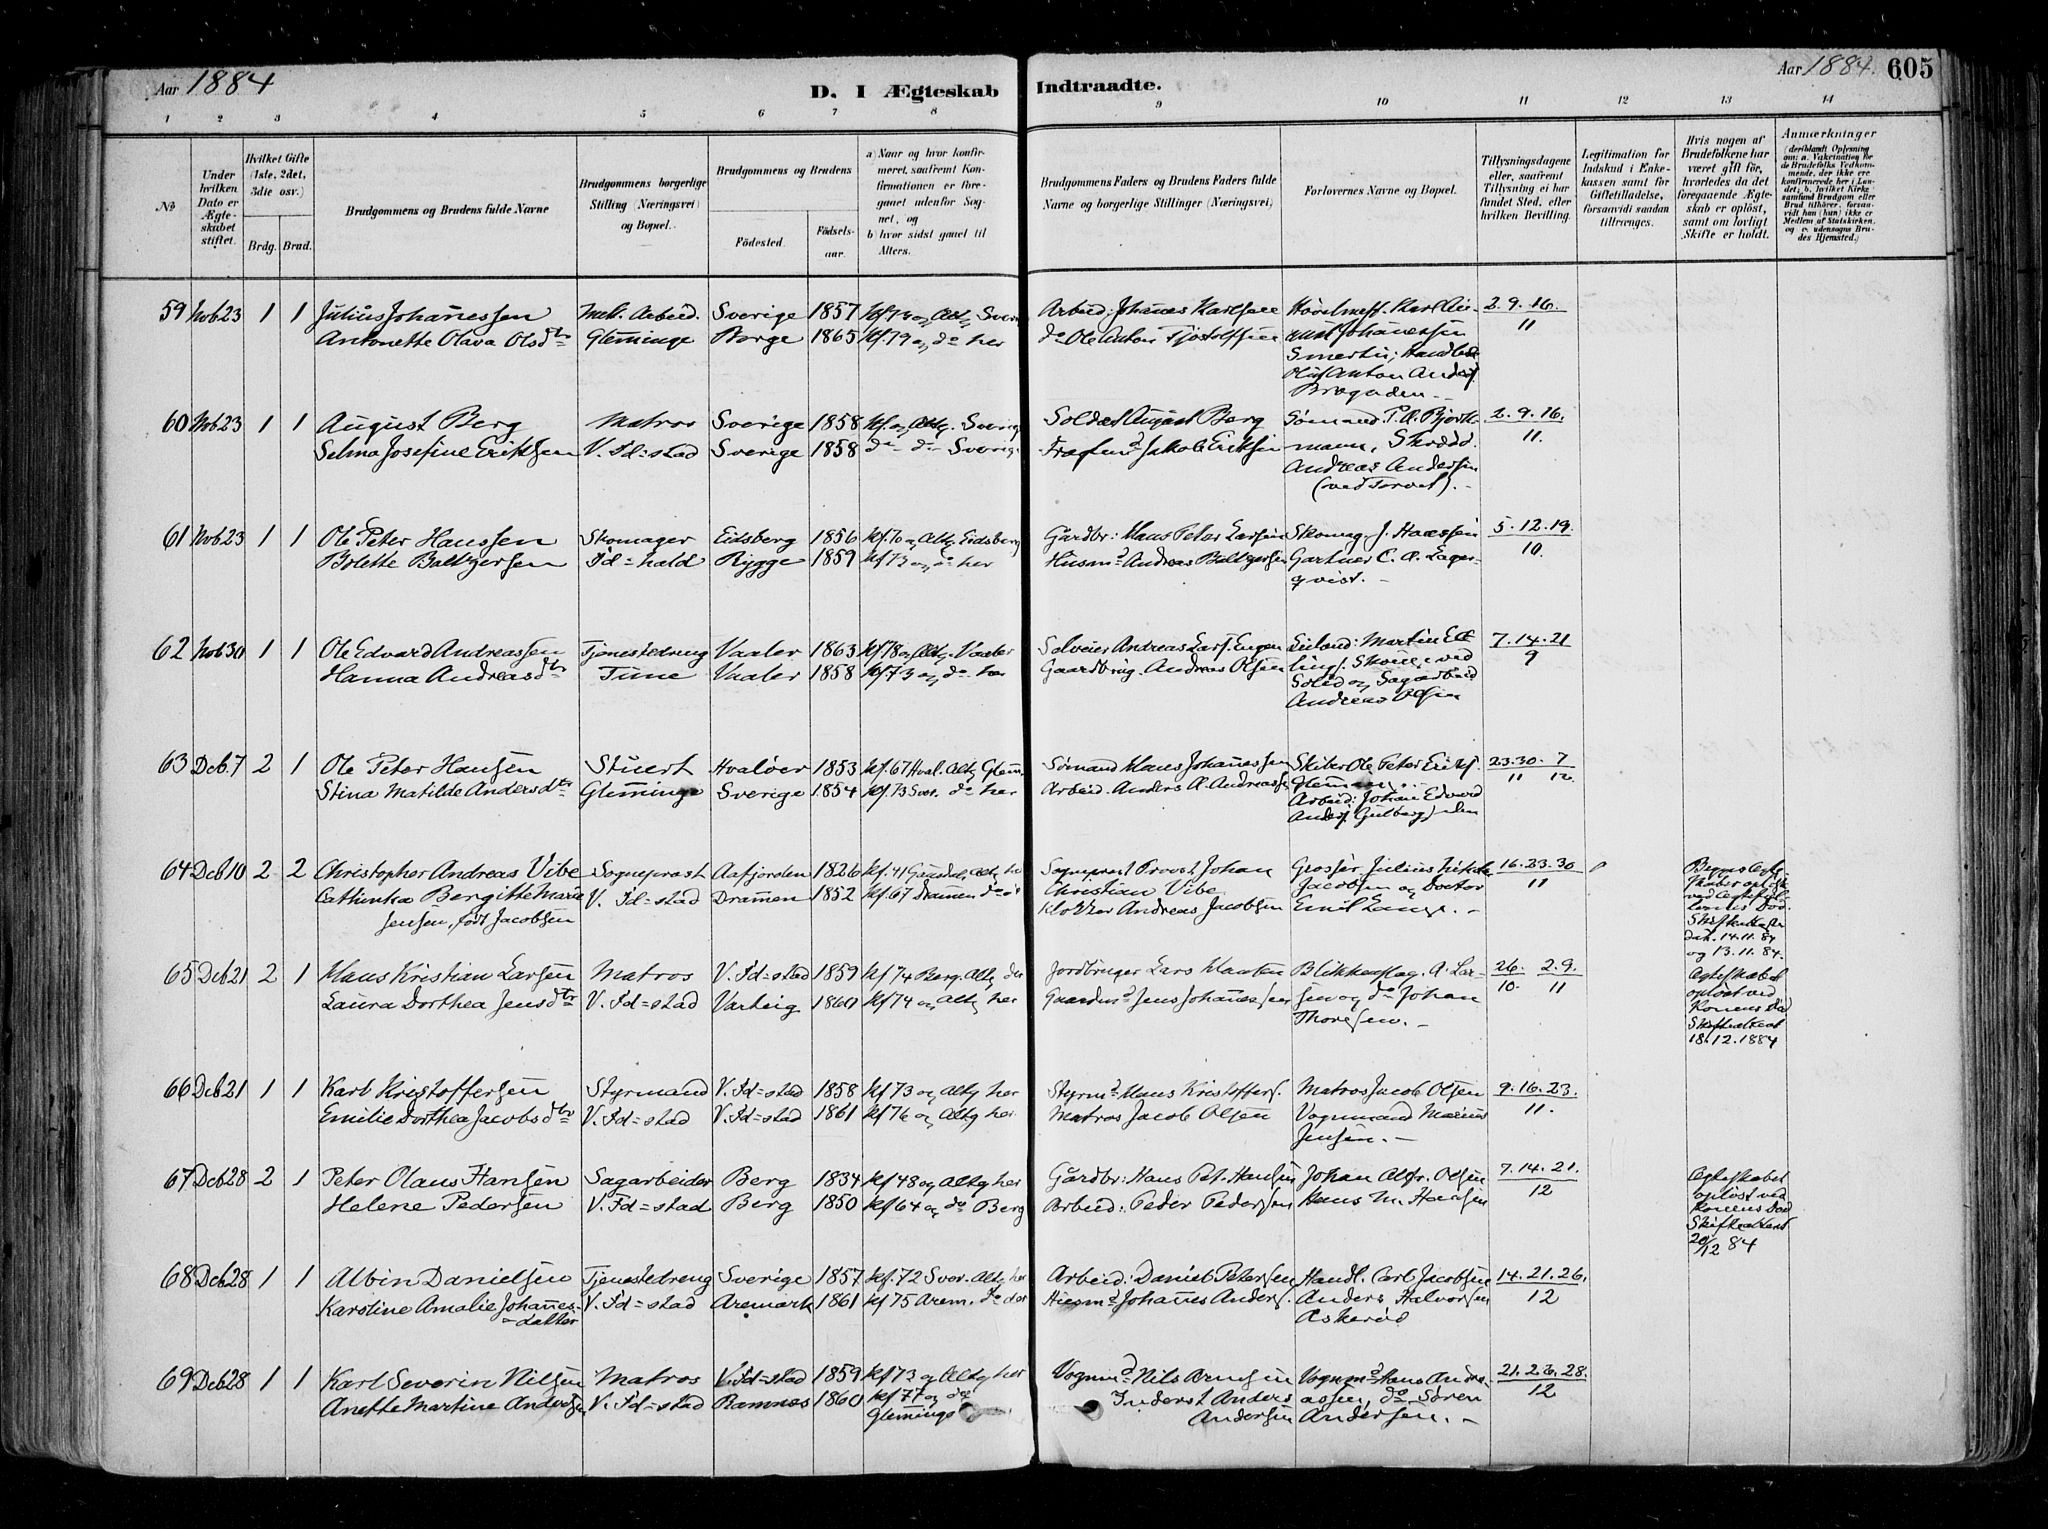 Aar 1884
D. I Ægteskab Indtraadte.
Aar 1884. 605
1 2 3 4 5 6 7 8 9 10 11 12 13 14
No
Under hvilken Dato er Ægteskabet stiftet.
Hvilket Gifte (1ste, 2det, 3die osv.)
Brdg. Brud.
Brudgommens og Brudens fulde Navne
Brudgommens borgerlige Stilling (Næringsvei) og Bopæl.
Brudgommens og Brudens
Fødested. Fødselsaar.
a) Naar og hvor konfirmeret, saafremt Konfirmationen er foregaaet udenfor Sognet, og
b) hvor sidst gaaet til Alters.
Brudgommens Faders og Brudens Faders fulde Navne og borgerlige Stillinger (Næringsvei)
Forlovernes Navne og Bopæl.
Tillysningsdagene eller, saafremt Tillysning ei har fundet Sted, efter hvilken Bevilling.
Legitimation for Indskud i Enkekassen samt for Giftetilladelse, forsaavidt saadan tiltrænges.
Hvis nogen af Brudefolkene har været gift før, hvorledes da det foregaaende Ægteskab er opløst, samt om lovligt Skifte er holdt.
Anmærkninger (deriblandt Oplysning om: a. Vakcination for de Brudefolks Vedkommende, der ikke ere konfirmerede her i Landet; b. hvilket Kirkesamfund Brudgom eller Brud tilhører, forsaavidt han (hun) ikke er Medlem af Statskirken, og c. udensogns Brudes Hjemsted.)
59 Nob 23 1 1 Julius Johanessen Mek. Arbeid. Sverige 1857 Arbeid. Johanes Karlsen 2. 9. 16.
Antonette Olava Olsdtr Glemminge Borge 1865 kf. 79 og do her do Ole Anton Tjostolfsen 11
Smertu; Handlsb
Oluf Anton Anders.
60 Nob 23 1 1 August Berg Matros Sverige 1858 kf og Altg. Sverig Soldat August Berg Sømand P. A. Bjørk- 2. 9. 16.
Selma Josefine Eriksen V. Fd=stad Sverige 1858 do do Sverig Jakob Eriksen mann, Skrædd. 11.
Andreas Andersen
(ved Torvet).
61 Nob 23 1 1 Ole Peter Hanssen Skomager Eidsberg 1856 kf. 70 og Altg Eidsberg Gårdbr: Hans Peter Larsen Skomag. J. Hanssen 5. 12. 19.
Bolette Baltzersen Fd=hald Rygge 1859 kf 73 og do her Husmd Andreas Baltzersen Gartner C. A. Lager- 10.
qvist.
62 Nob 30 1 1 Ole Edvard Andreassen Tjenestedreng Vaaler 1863 kf 78 og Altg. Vaaler Selveier Andreas Lars. Engen Martin Ell 7. 14. 21
Hanna Andreasdtr Tune Vaaler 1858 kf. 73 og do her Gaardbrug. Andreas Olsen 9
Andreas Olsen
63 Deb. 7 2 1 Ole Peter Hansen Stuert Hvaløer 1853 kf. 67 Hval. Altg Glem. Sømand Hans Johannessen Skiber Ole Peter Eriks. 23. 30. 7
Stina Matilde Andersdtr Glemminge Sverige 1854 kf. 73 Sver. do her Arbeid. Anders A. Andreassen 11 12.
Arbeid: Johan Edvard
Anders. Gulberg
64 Deb 10 2 2 Christopher Andreas Vibe Sogneprest Aafjorden 1826 Sogneprest Provst Johan Grosser Julius 16. 23. 30
Cathinka Bergitte Marie V. Fd=stad Dramen 1852 kf. 67 Dramen Christian Vibe Jacobsen og Doctor 11
Jensen, født Jacobsen Klokker Andreas Jacobsen Emil Lange.
dat. 14.11.84
og 13.11.84.
65 Deb 21 2 1 Hans Kristian Larsen Matros V. Fd=stad 1859 kf 74 Berg. Altg der Jordbruger Lars Blikkenslag. A. Lar- 26. 2. 9.
Laura Dorthea Jensdtr V. Fd=stad Varteig 1860 kf 74 og Altg her Gaardmd Jens Johannessen sen og do Johan 10. 11
Thoresen.
Ægteskabet
opløst ved
Konens Død
Skifteattest
18.12.1884
66 Deb 21 1 1 Karl Kristoffersen Styrmand V. Fd=stad 1858 kf 73 og Altg her Styrmd Hans Kristoffers. Matros Jacob Olsen 9. 16. 23.
Emilie Dorthea Jacobsdtr V. Fd=stad V. Fd=stad 1861 kf 76 og Altg her Matros Jacob Olsen Vognmand Marius 11.
Jensen.
67 Deb 28 2 1 Peter Olaus Hansen Sagarbeider Berg 1834 kf 48 og Altg her Gårdbr: Hans Pet. Hansen Johan Alfr. Olsen 7. 14. 21.
Helene Pedersen V. Fd=stad Berg 1850 kf 64 og do Berg Arbeid: Peder Pedersen Hans M. Hansen 12
Ægteskabet
opløst ved
Konens Død
Skifteattest
20/12 84
68 Deb 28 1 1 Albin Danielsen Tjenestedreng Sverige 1857 kf. 72 Sver. Altg her Arbeid: Daniel Petersen Handl. Carl Jacobsen 14. 21. 26.
Karstine Amalie Johanes- V. Fd=stad Aremark 1861 kf 75 Arem. do der Husmd Johanes Anders. Anders Halvorsen 12
datter Askerød
69 Deb 28 1 1 Karl Severin Nilsen Matros V. Fd=stad 1859 kf 73 og Altg her Vognmd Nils Arnsen Vognmd Hans Andre- 21. 26. 28.
Anette Martine Andersen V. Fd=stad Ramnes 1860 kf 77 og do Inderst Anders assen, do Søren 12
Glemminge Andersen Andersen.